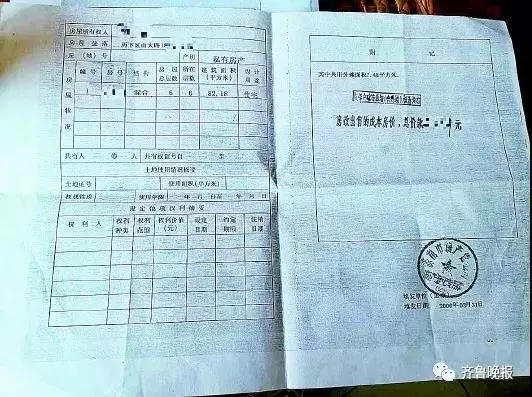 房屋所有权人
房屋坐落 历下区山大路
丘（地）号 产别 私有房产
房屋状况
幢号 房号 结构 房屋总层数 所在层数 建筑面积（平方米） 设计用途
混合 6 6 82.18 住宅
共有人 等 人 共有权证号自 至
土地使用情况摘要
土地证号 使用面积（平方米）
权属性质 使用年限 年 月 日至 年 月 日
设定他项权利摘要
权利人 权利种类 权利范围 权利价值（元） 设定日期 约定期限 注销日期
附 记
其中共用分摊面积7.48平方米。
房改出售的成本价房，总价款 元
填发单位（盖章）
填发日期：
齐鲁晚报